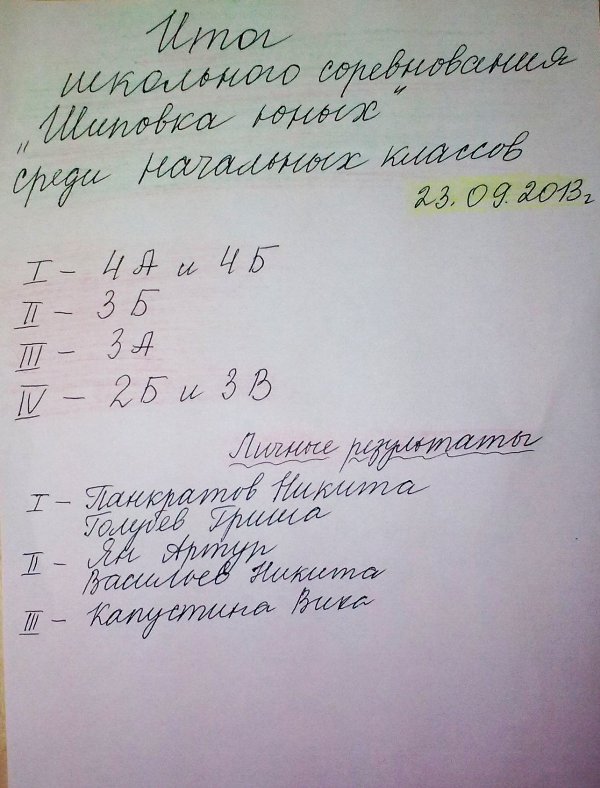 Итог
школьного соревнования
„Шиповка юных“
среди начальных классов
23.09.2013г
I – 4А и 4Б
II – 3Б
III – 3А
IV – 2Б и 3В
Личные результаты
I – Панкратов Никита
Голубев Гриша
II – Ян Артур
Васильев Никита
III – Капустина Вика